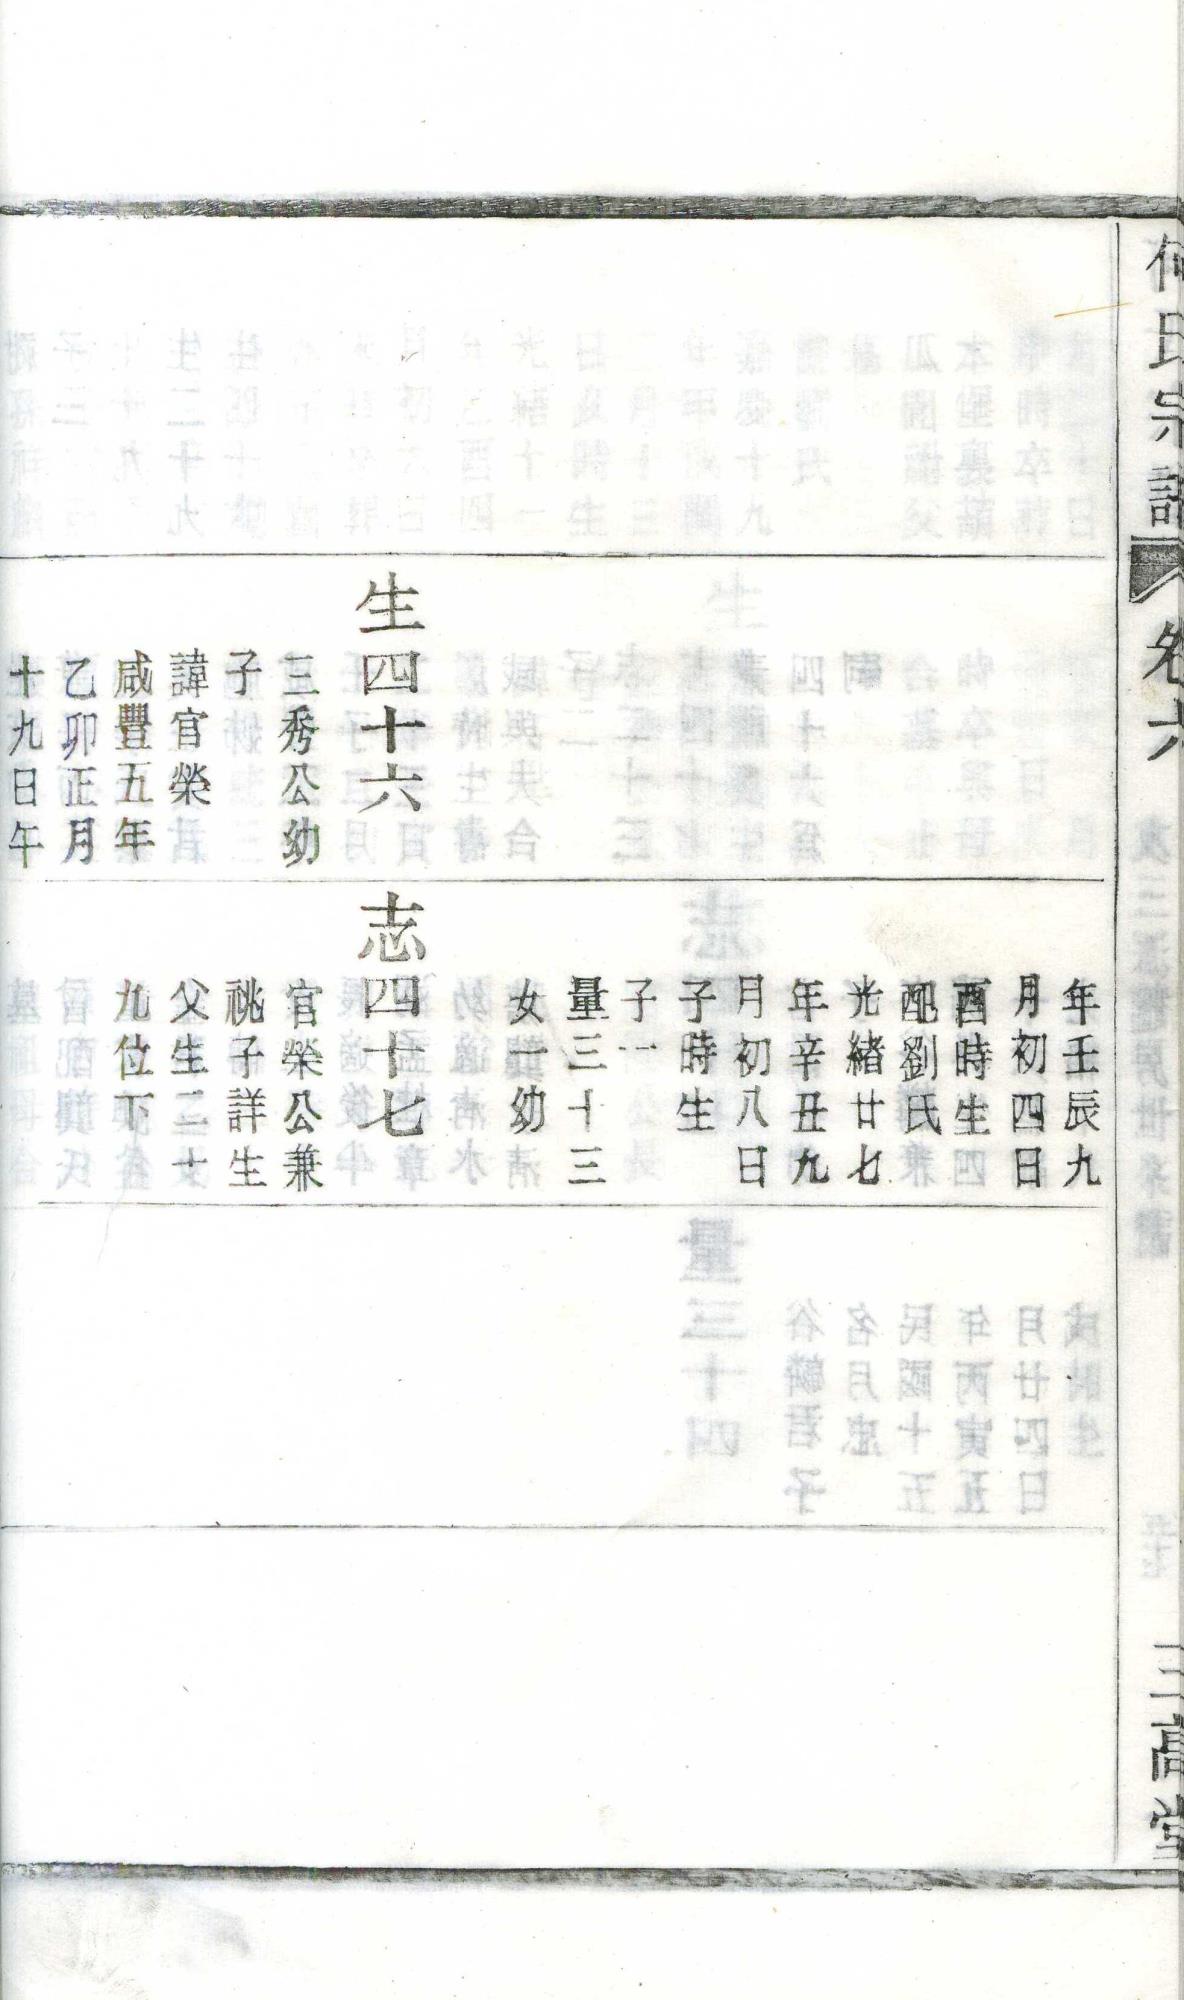 何氏宗譜
卷六
三高堂
生四十六
三秀公幼
子
諱官榮
咸豐五年
乙卯正月
十九日午
年壬辰九
月初四日
酉時生
配劉氏
光緒廿七
年辛丑九
月初八日
子時生
子一
量三十三
女一幼
志四十七
官榮公兼
祧子詳生
父生二十
九位下